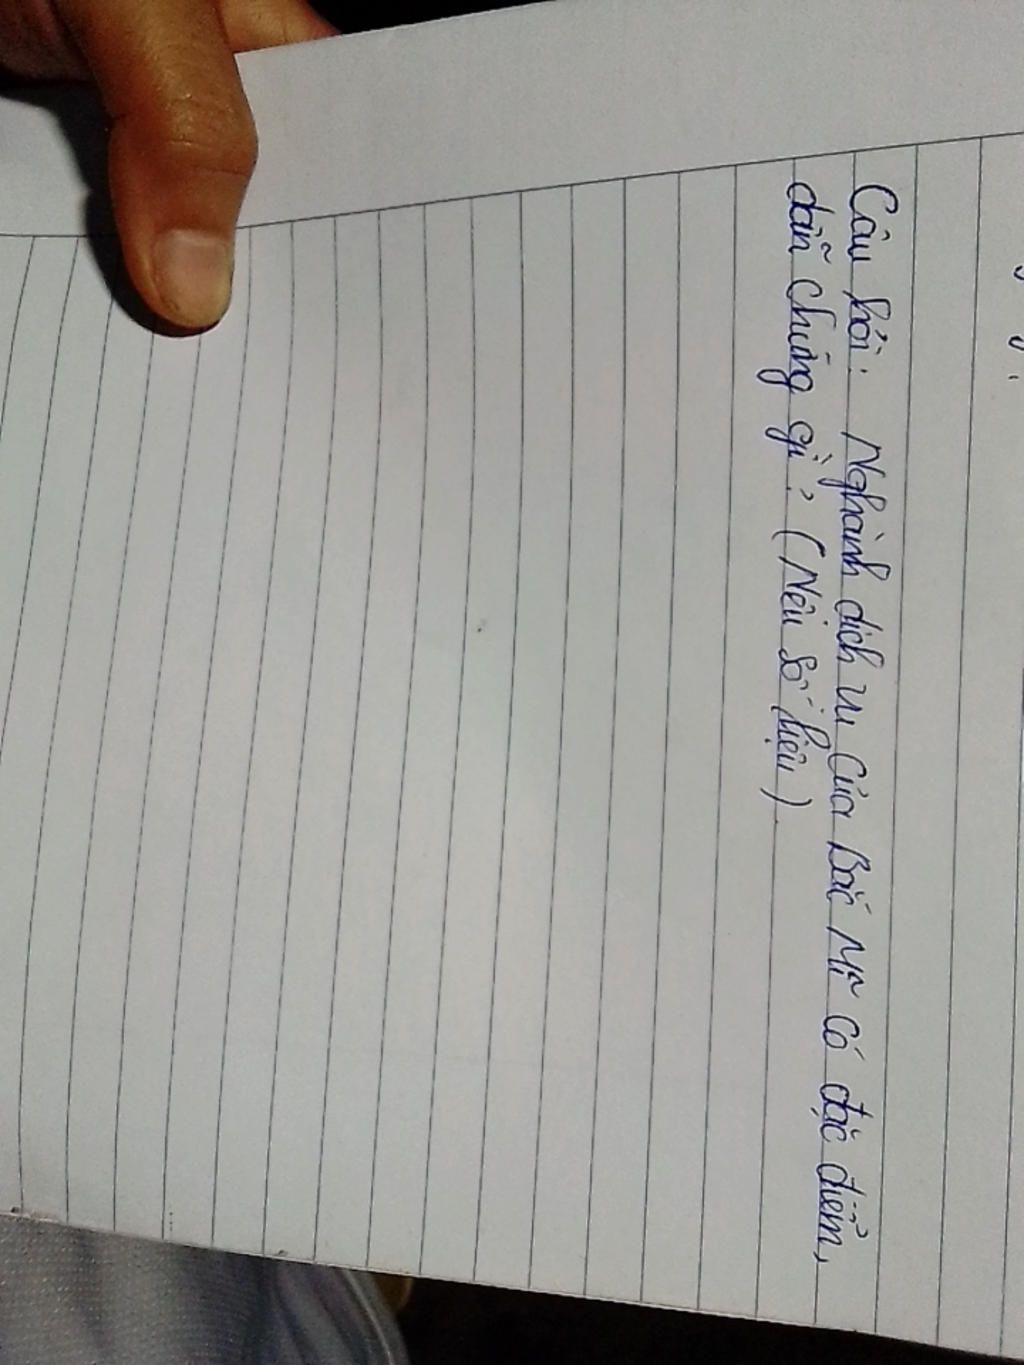 Câu hỏi: Nghành dịch vụ của Bắc Mĩ có đặc điểm,
dẫn chứng gì? (Nêu số liệu)